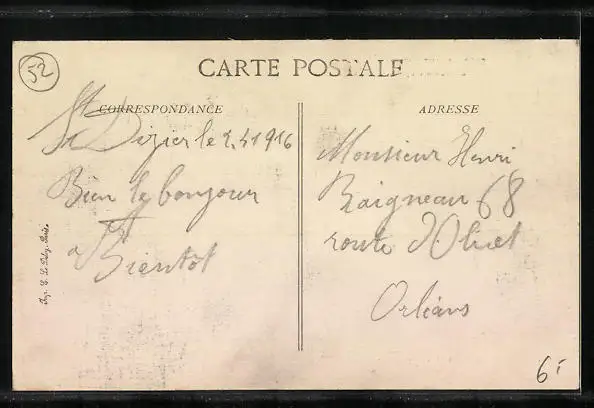 52
CARTE POSTALE
CORRESPONDANCE
ADRESSE
St Dizier le 2.4 1916
Bien le bonjour
a Bientôt
Monsieur Henri
Raigneau 68
route d'Olivet
Orléans
6